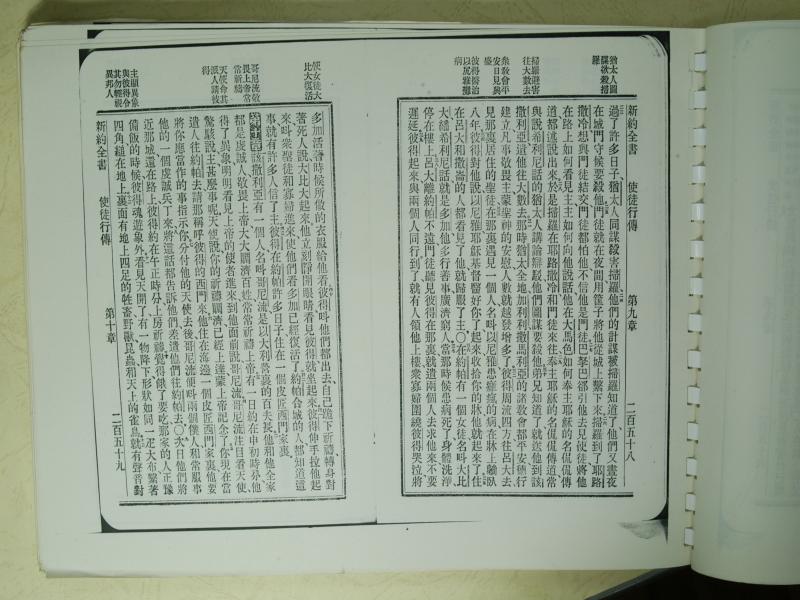 新約全書 使徒行傳 第九章 二百五十八
猶太人圖謀欲殺掃羅
掃羅避害往大數去
衆敎會平安日見興盛
彼得醫治以尼雅攤病
過了許多日子、猶太人同謀殺害掃羅他們的計謀被掃羅知道了他們又晝夜
在城門守候要殺他門徒就在夜間用筐子將他從城上繫下來掃羅到了耶路
撒冷想與門徒結交門徒都怕他不信他是門徒巴拏巴卻引他去見使徒將他
在路上如何看見主主如何向他說話他在大馬色如何奉主耶穌的名侃侃傳
道都述說出來於是掃羅在耶路撒冷和門徒來往奉主耶穌的名侃侃傳道常
與說希利尼話的猶太人講論辯駁他們圖謀要殺他弟兄知道了就送他到該
撒利亞打發他往大數去那時猶太全地加利利撒馬利亞的諸敎會都平安德行
建立凡事敬畏主蒙聖神的安慰人數就越發增多了彼得周流四方往呂大去
見那裏居住的聖徒在那裏遇見一個人名叫以尼雅患癱瘋的病在牀上躺臥
八年彼得對他說以尼雅耶穌基督醫好你了起來收拾你的牀他就起來了住
在呂大和撒崙的人都看見了他就歸服了主○在約帕有一個女徒名叫大比
大繙希利尼話就是多加他多行善事廣濟窮人當那時候患病死了身體洗淨
停在樓上呂大離約帕不遠門徒聽見彼得在那裏就遣兩個人去求他來不要
遲延彼得起來與兩個人同行到了就有人領他上樓衆寡婦圍繞彼得哭拉將
使女徒大比大復活
哥尼流敬畏上帝常常祈禱
天使命其派人請彼得
主顯異象與彼得令其勿輕視異邦人
多加活著時候所做的衣服給他看彼得叫他們都出去、自己跪下祈禱轉身對
著死人說大比大起來他立刻睜開眼睛看見彼得就坐起來彼得伸手拉他起
來叫衆聖徒和寡婦進來使他們看多加已經復活了約帕合城的人都知道這
事就有許多人信了主彼得在約帕許多日子住在一個皮匠西門家裏
第十章該撒利亞有一個人名叫哥尼流是以大利營裏的百夫長他和他全家
都是虔誠人敬畏上帝大大賙濟百姓常常祈禱上帝有一日約在申初時分他
得了異象明明看見上帝的使者進來到他面前說哥尼流哥尼流注目看天使
驚駭說主甚麽事呢天使說你的祈禱賙濟已經上達蒙上帝記念了你現在當
遣人往約帕去請那稱呼彼得的西門來他住在海邊一個皮匠西門家裏他要
將你應當作的事指示你分付他的天使去後哥尼流便叫兩個僕人和常服事
他的一個虔誠兵丁來將這話都告訴他們差遣他們往約帕去○次日他們將
近那城還在路上彼得約在午正時分上房祈禱覺得餓了要吃那家的人正豫
備飯的時候彼得魂遊象外看見天開了有一物降下形狀如同一疋大布繫著
四角縋在地上裏面有地上四足的牲畜野獸昆蟲和天上的雀鳥就有聲音對
新約全書 使徒行傳 第十章 二百五十九